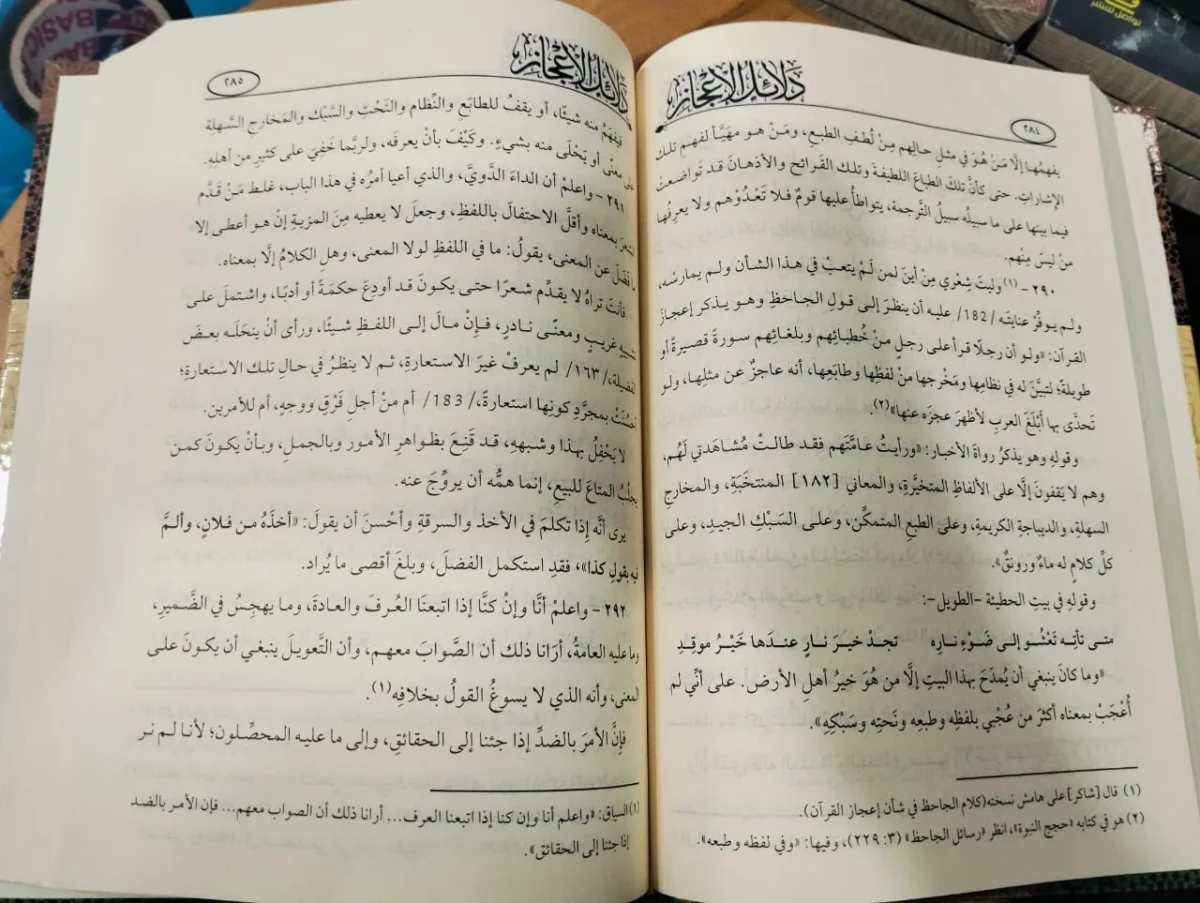 دلائل الإعجاز
٢٨٤
يفهمُها إلَّا مَنْ هُوَ في مثلِ حالِهم مِنْ لُطفِ الطبعِ، ومَنْ هو مهَيَّأ لفهمِ تلك
الإشاراتِ. حتى كأنَّ تلكَ الطباعَ اللطيفةَ وتلك القَرائحَ والأذهانَ قد تَواضعتْ
فيما بينها على ما سبيلُه سبيلُ التَّرجمة، يتواطأُ عليها قومٌ فلا تَعْدُوْهم ولا يعرِفُها
منْ ليسَ مِنْهم.
٢٩٠ – (١)وليتَ شِعْري مِنْ أينَ لمن لَمْ يتعبْ في هذا الشأن ولم يمارسْه،
ولم يوفِّرْ عنايتَه /182/ عليه أن ينظرَ إلى قولِ الجاحظِ وهو يذكر إعجازَ
القرآن: «ولو أن رجلًا قرأ على رجلٍ منْ خُطبائِهم وبلغائِهم سورةً قصيرةً أو
طويلةً؛ لتبيَّنَ له في نظامِها ومَخْرجِها منْ لفظِها وطابَعِها، أنه عاجزٌ عن مثلِها، ولو
تَحدَّى بها أبْلَغَ العربِ لأظهرَ عجزَه عنها»(٢).
وقولِه وهو يذكرُ رواةَ الأخبار: «ورأيتُ عامَّتَهم فقد طالتْ مُشاهَدتي لَهُم،
وهم لا يَقفونَ إلَّا على الألفاظِ المتخيَّرةِ، والمعاني [١٨٢] المنتخَبَةِ، والمخارجِ
السهلةِ، والديباجةِ الكريمةِ، وعلى الطبعِ المتمكِّن، وعلى السَبْكِ الجيدِ، وعلى
كلِّ كلامٍ له ماءٌ ورونقٌ».
وقولِه في بيتِ الحطيئة –الطويل–:
متى تأتِه تَعْشُو إلى ضَوْءِ نارِه تجدْ خيرَ نارٍ عندَها خَيْرُ موقِدِ
«وما كانَ ينبغي أن يُمدَحَ بهذا البيتِ إلَّا من هُوَ خيرُ أهلِ الأرض. على أنِّي لم
أُعْجَبْ بمعناه أكثرَ من عُجْبي بلفظِه وطبعِه ونَحتِه وسَبْكِهِ».
(١) قال [شاكر] على هامش نسخته(كلام الجاحظ في شأن إعجاز القرآن).
(٢) هو في كتابه «حجج النبوة»، انظر «رسائل الجاحظ» (٣: ٢٢٩)، وفيها: «وفي لفظه وطبعه».
دلائل الإعجاز
٢٨٥
فيفهَمُ منه شيئًا، أو يقفُ للطابَعِ والنِّظام والنَحْتِ والسَّبْك والمَخارجِ السَّهلةِ
على معنًى أو يَحْلَى منه بشيءٍ. وكَيْفَ بأنْ يعرفَه، ولربَّما خَفِيَ على كثيرٍ من أهلِه.
٢٩١ – واعلمْ أن الداءَ الدَّويَّ، والذي أعيا أمرُه في هذا الباب، غلط مَنْ قَدَّم
الشعرَ بمعناه وأقلَّ الاحتفالَ باللفظِ، وجعلَ لا يعطيه مِنَ المزيةِ إنْ هو أعطى إلا
ما فَضَلَ عنِ المعنى، يقولُ: ما في اللفظِ لولا المعنى، وهلِ الكلامُ إلَّا بمعناه.
فأنتَ تراهُ لا يقدِّم شعرًا حتى يكونَ قد أودِعَ حكمَةً أو أدبًا، واشتملَ على
تشبيهٍ غريبٍ ومعنًى نادرٍ، فإنْ مالَ إلى اللفظِ شيئًا، ورأى أنْ ينحَلَه بعضَ
الفضيلة،/١٦٣/ لم يعرفْ غيرَ الاستعارةِ، ثم لا ينظرُ في حالِ تلك الاستعارةِ؛
أحَسُنَتْ بمجرَّدِ كونِها استعارةً،/183/ أم منْ أجلِ فَرْقٍ ووجهٍ، أم للأمرين.
لا يَحْفِلُ بهذا وشبهِه، قد قَنِعَ بظواهرِ الأمورِ وبالجملِ، وبأنْ يكونَ كمن
يجلُبُ المتاعَ للبيعِ، إنما همُّه أن يروِّجَ عنه.
يرى أنَّه إذا تكلمَ في الأخذِ والسرقةِ وأحْسنَ أن يقولَ: «أخذَهُ من فلانٍ، وألـمَّ
فيه بقولِ كذا»، فقدِ استكملَ الفضلَ، وبلغَ أقصى ما يُراد.
٢٩٢ – واعلمْ أنَّا وإنْ كنَّا إذا اتبعنَا العُرفَ والعادةَ، وما يهجِسُ في الضَّميرِ،
وما عليه العامةُ، أرَانا ذلك أن الصَّوابَ معهم، وأن التَّعويلَ ينبغي أن يكونَ على
المعنى، وأنه الذي لا يسوغُ القولُ بخلافِه(١).
فإنَّ الأمرَ بالضدِّ إذا جئنا إلى الحقائقِ، وإلى ما عليه المحصِّلون؛ لأنا لم نر
(١) السياق: «واعلم أنا وإن كنا إذا اتبعنا العرف... أرانا ذلك أن الصواب معهم... فإن الأمر بالضد
إذا جئنا إلى الحقائق».
BASIC
تواصل للنشر